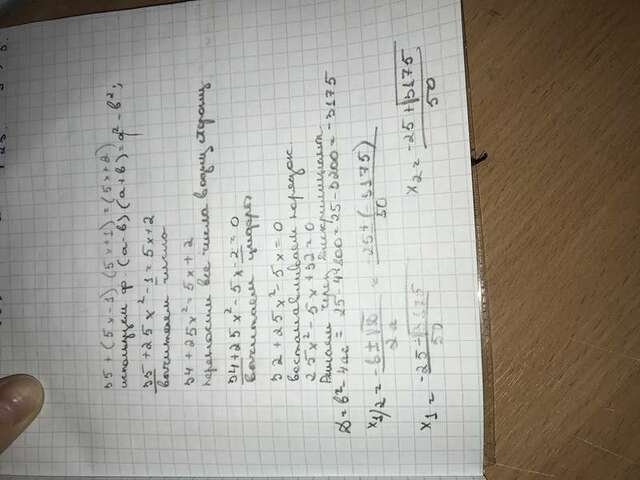 35 + (5x-1) (5x+1) = (5x+2)
используем ф. (a-b) (a+b) = a² - b²;
35 + 25x² - 1 = 5x + 2
вычитаем числа
34 + 25x² = 5x + 2
переносим все числа в одну сторону
34 + 25x² - 5x - 2 = 0
вычитаем
32 + 25x² - 5x = 0
восстанавливаем порядок.
25x² - 5x + 32 = 0
Решаем через дискриминант
D = b² - 4ac = 25 - 4*800 = 25 - 3200 = -3175
x1/2 = -b ± √D / 2a = -25 + (-3175) / 50
x1 = -25 - √3175 / 50
x2 = -25 + √3175 / 50